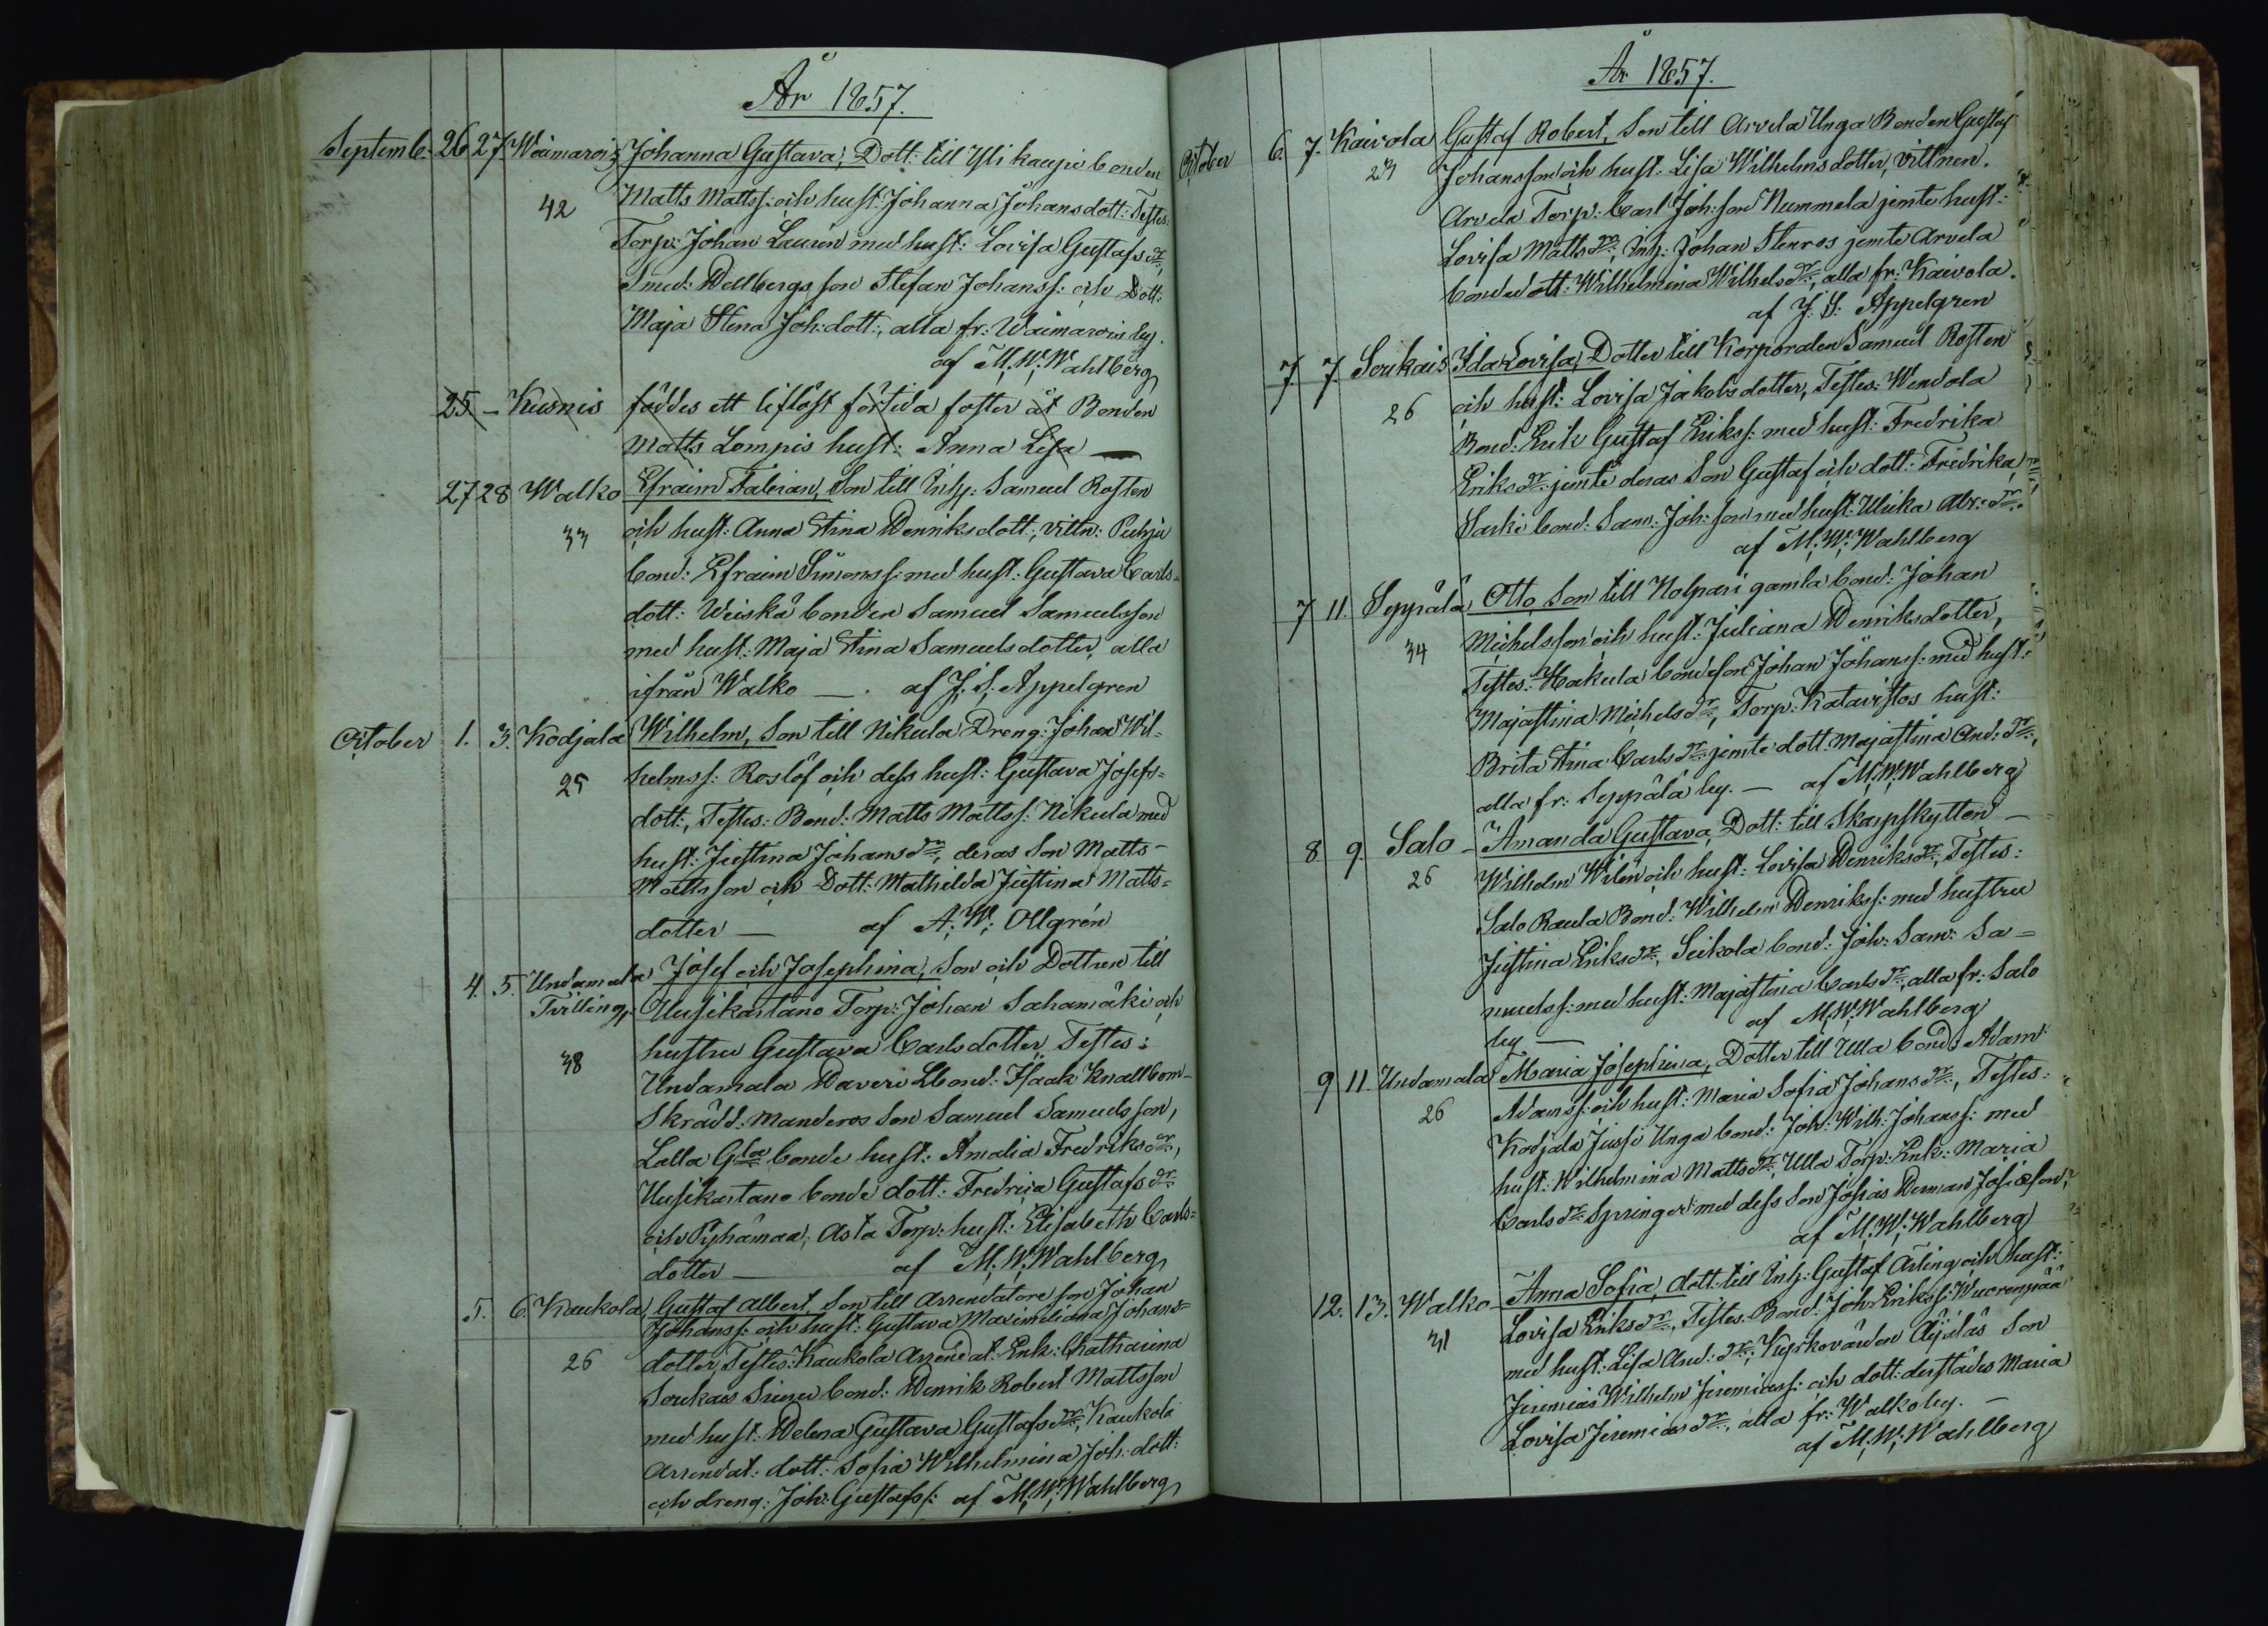 År 1857.
Septemb. 26 27 Waimarois Johanna Gustava, Dott: till Yli kaupi bonden
42 Matts Mattss: och hust: Johanna Johansdott: Testes:
Torp: Johan Laurén med hust: Lovisa Gustafs dr,
Smed: Hellbergs son Stefan Johanss: och Dott:
Maja Stena Joh: dott:, alla fr: Waimarois by.
af M. W. Wahlberg
25 – Kusnis föddes ett liflöst förtida foster åt Bonden
Matts Lompis hust: Anna Lisa —
27 28 Walko Efraim Fabian, Son till Inh: Samuel Rosten
33 och hust: Anna Stina Henriksdott:, vittn: Puhju
bond: Efraim Simonss: med hust: Gustava Carls=
dott: Uuiska bonden Samuel Samuelsson
med hust: Maja Stina Samuelsdotter, alla
ifrån Walko —. af J. S. Appelgren
October 1. 3. Kodjala Wilhelm, Son till Nikula Dreng: Johan Wil=
25 helmss: Roslöf och dess hust: Gustava Josefs=
dott:, Testes: Bond: Matts Mattss: Nikula med
hust: Justina Johans dr, deras Son Matts
Mattsson och Dott: Mathilda Justina Matts=
dotter — af A. W. Ollgrén
4. 5. Undamala Josef och Josephina, Son och Dottren till
Tvilling, Uusikartano Torp: Johan Sahamäki och
38 hustru Gustava Carlsdotter Testes:
Undamala Haveri Lbond: Isaak Knallbom
Skrädd: Manderos Son Samuel Samuelsson,
Lalla Gla bonde hust: Amalia Fredriks dr,
Uusikartano bonde dott: Fredrica Gustafs dr
och Pyhämaa, Asla Torp: hust: Elisabeth Carls=
dotter — af M. W. Wahlberg
5. 6. Kaukola Gustaf Albert, Son till Arrendatore son Johan
Johanss: och hust: Gustava Maximiliana Johans=
26 dotter, Testes: Kaukola Arrendat: Enk: Chatharina
Soukais Sieru bond: Henrik Robert Mattsson
med hust: Helena Gustava Gustafs dr, Kaukola
Arrendat: dott: Sofia Wilhelmina Joh: dott:
och dreng: Joh: Gustafss: af M. W. Wahlberg
År 1857.
October 6. 7. Kaivola Gustaf Robert, Son till Arvela Unga Bonden Gustaf
23 Johansson och hust: Lisa Wilhelmsdotter, vittnen.
Arvela Torp: Carl Joh: son Nummela jemte hust:
Lovisa Matts dr; Inh: Johan Stenros jemte Arvela
bonded ott: Wilhelmina Wilhels dr, alla fr: Kaivola.
af J. S: Appelgren
7 7. Soukais Ida Lovisa, Dotter till Korporalen Samuel Rosten
26 och hust: Lovisa Jakobsdotter, Testes: Wendola
Bond: Erik Gustaf Erikss: med hust: Fredrika
Eriks dr jemte deras Son Gustaf och dott: Fredrika,
Sarki bond: Sam: Joh: son med hust: Ulrika Abr: dr
af M. W. Wahlberg
7 11. Seppälä Otto, Son till Nolpari gamla bond: Johan
34 Michelsson och hust: Juliana Henriksdotter,
Testes: Hakula bondeson Johan Johanss: med hust:
Majastina Michels dr, Torp: Katavistos hust:
Brita Stina Carls dr jemte dott: Majastina And: dr,
alla fr: Seppälä by. — af M. W. Wahlberg
8 9. Salo – Amanda Gustava, Dott: till Skarpskytten –
26 Wilhelm Wilén och hust: Lovisa Henriks dr, Testes:
Salo Raula Bond: Wilhelm Henrikss: med hustru
Justina Eriks dr, Seikola bond: Joh: Sam: Sa=
muelss: med hust: Majastina Carls dr, alla fr: Salo
by — af M. W. Wahlberg
9 11. Undamala Maria Josephina, Dotter till Ulla bond: Adam
26 Adamss: och hust: Maria Sofia Johans dr, Testes:
Kodjala Jussi Unga bond: Joh: Wilh: Johanss: med
hust: Wilhelmina Matts dr, Ulla Torp: Enk: Maria
Carls dr Springer med dess Son Josias Herman Josiæson,
af M. W. Wahlberg
12. 13. Walko – Anna Sofia, dott: till Inh: Gustaf Arling och hust:
31 Lovisa Eriks dr, Testes: Bond: Joh: Erikss: Wuorenpää
med hust: Lisa And: dr, Kyrkovärden Äijäläs Son
Jeremias Wilhelm Jeremiass: och dott: derstädes Maria
Lovisa Jeremias dr, alla fr: Walko by. –
af M. W. Wahlberg